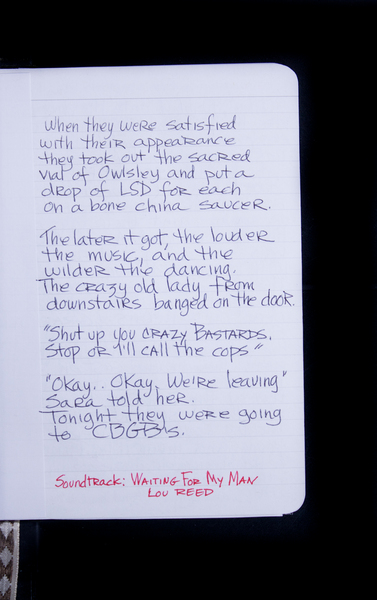 When they were satisfied
with their appearance
they took out the sacred
vial of Owlsley and put a
drop of LSD for each
on a bone china saucer.
The later it got, the louder
the music, and the
wilder the dancing.
The crazy old lady from
downstairs banged on the door.
"Shut up you CRAZY BASTARDS.
Stop or I'll call the cops"
"Okay.. Okay. We're leaving"
Sara told her.
Tonight they were going
to CBGB's.
Soundtrack: WAITING FOR MY MAN
LOU REED